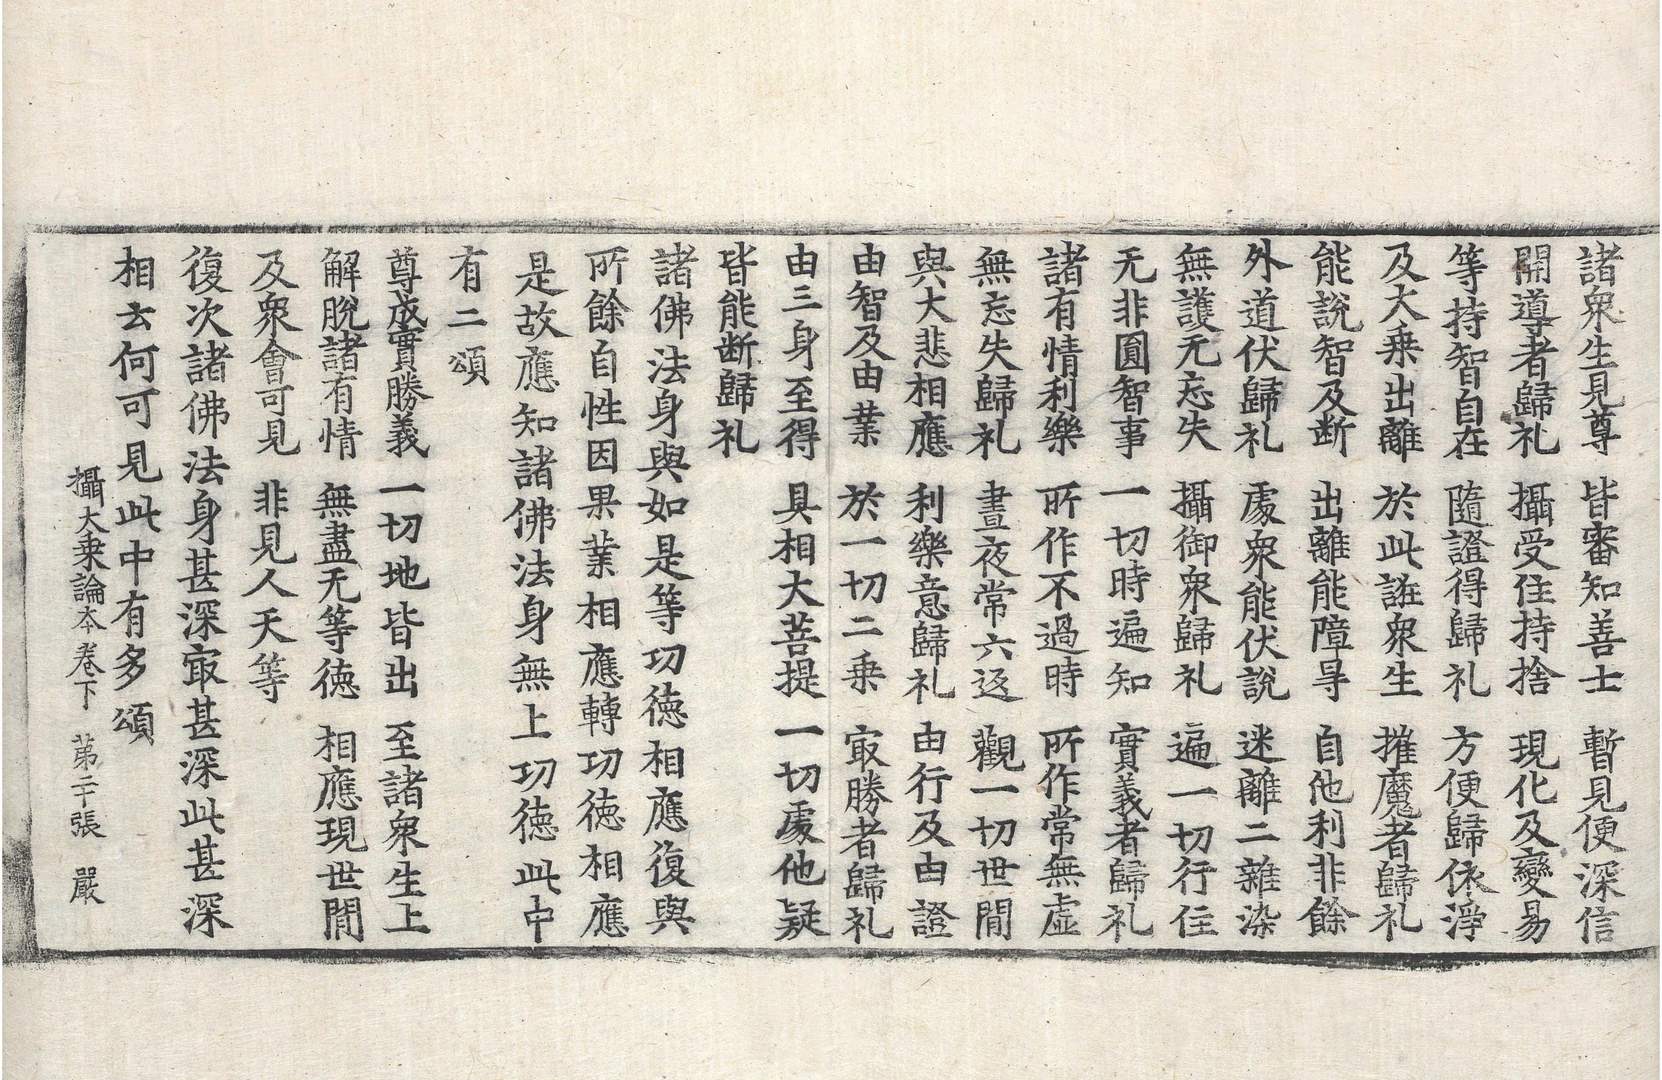 諸衆生見尊 皆審知善士 暫見便深信
開導者歸礼 攝受住持捨 現化及變易
等持智自在 隨證得歸礼 方便歸依淨
及大乗出離 於此誑衆生 摧魔者歸礼
能說智及断 出離能障㝵 自他利非餘
外道伏歸礼 處衆能伏說 逺離二雜染
無護无忘失 攝御衆歸礼 遍一切行住
无非圎智事 一切時遍知 實義者歸礼
諸有情利樂 所作不過時 所作常無虚
無忘失歸礼 晝夜常六返 觀一切世間
與大悲相應 利樂意歸礼 由行及由證
由智及由業 於一切二乗 㝡勝者歸礼
由三身至得 具相大菩提 一切處他疑
皆能断歸礼
諸佛法身與如是等功徳相應復與
所餘自性因果業相應轉功徳相應
是故應知諸佛法身無上功徳此中
有二頌
尊成實勝義 一切地皆出 至諸衆生上
解脫諸有情 無盡无等徳 相應現世間
及衆會可見 非見人天等
復次諸佛法身甚深㝡甚深此甚深
相云何可見此中有多頌
攝大乗論本卷下 第二十張 嚴